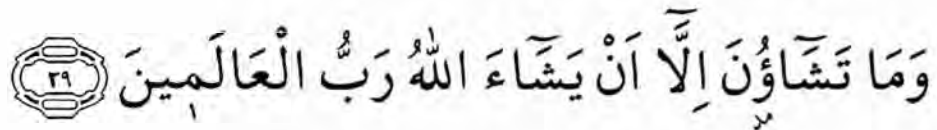 وَمَا تَشَٓاؤُ۫نَ اِلَّٓا اَنْ يَشَٓاءَ اللّٰهُ رَبُّ الْعَالَم۪ينَ ﴿٢٩﴾